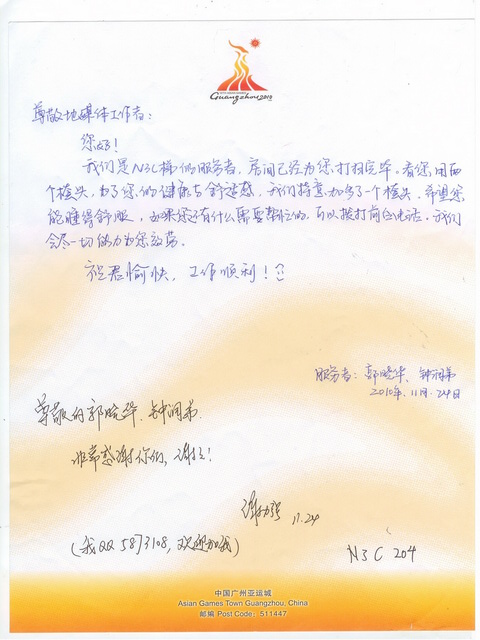 Guangzhou2010
尊敬地媒体工作者：
您好！
我们是N3C梯的服务者，房间已经为您打扫完毕。看您用两
个枕头，为了您的健康与舒适感，我们特意加多了一个枕头，希望您
能睡得舒服，如果您还有什么需要帮忙的，可以拨打前台电话，我们
会尽一切能力为您效劳。
祝君愉快，工作顺利！
服务者：郭晓华、钟润弟
2010年.11月.24日
尊敬的郭晓华、钟润弟，
非常感谢你们，谢谢！
11.24
(我QQ 5873108，欢迎加我)
N3C 204
中国广州亚运城
Asian Games Town Guangzhou, China
邮编 Post Code: 511447